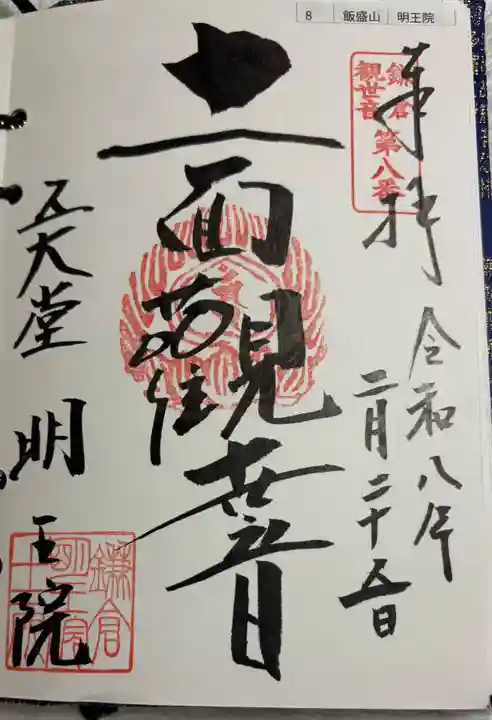 8 飯盛山 明王院
鎌倉
観世音
第八番
奉拝
令和八年
二月二十五日
十一面観世音
五大堂 明王院
鎌倉